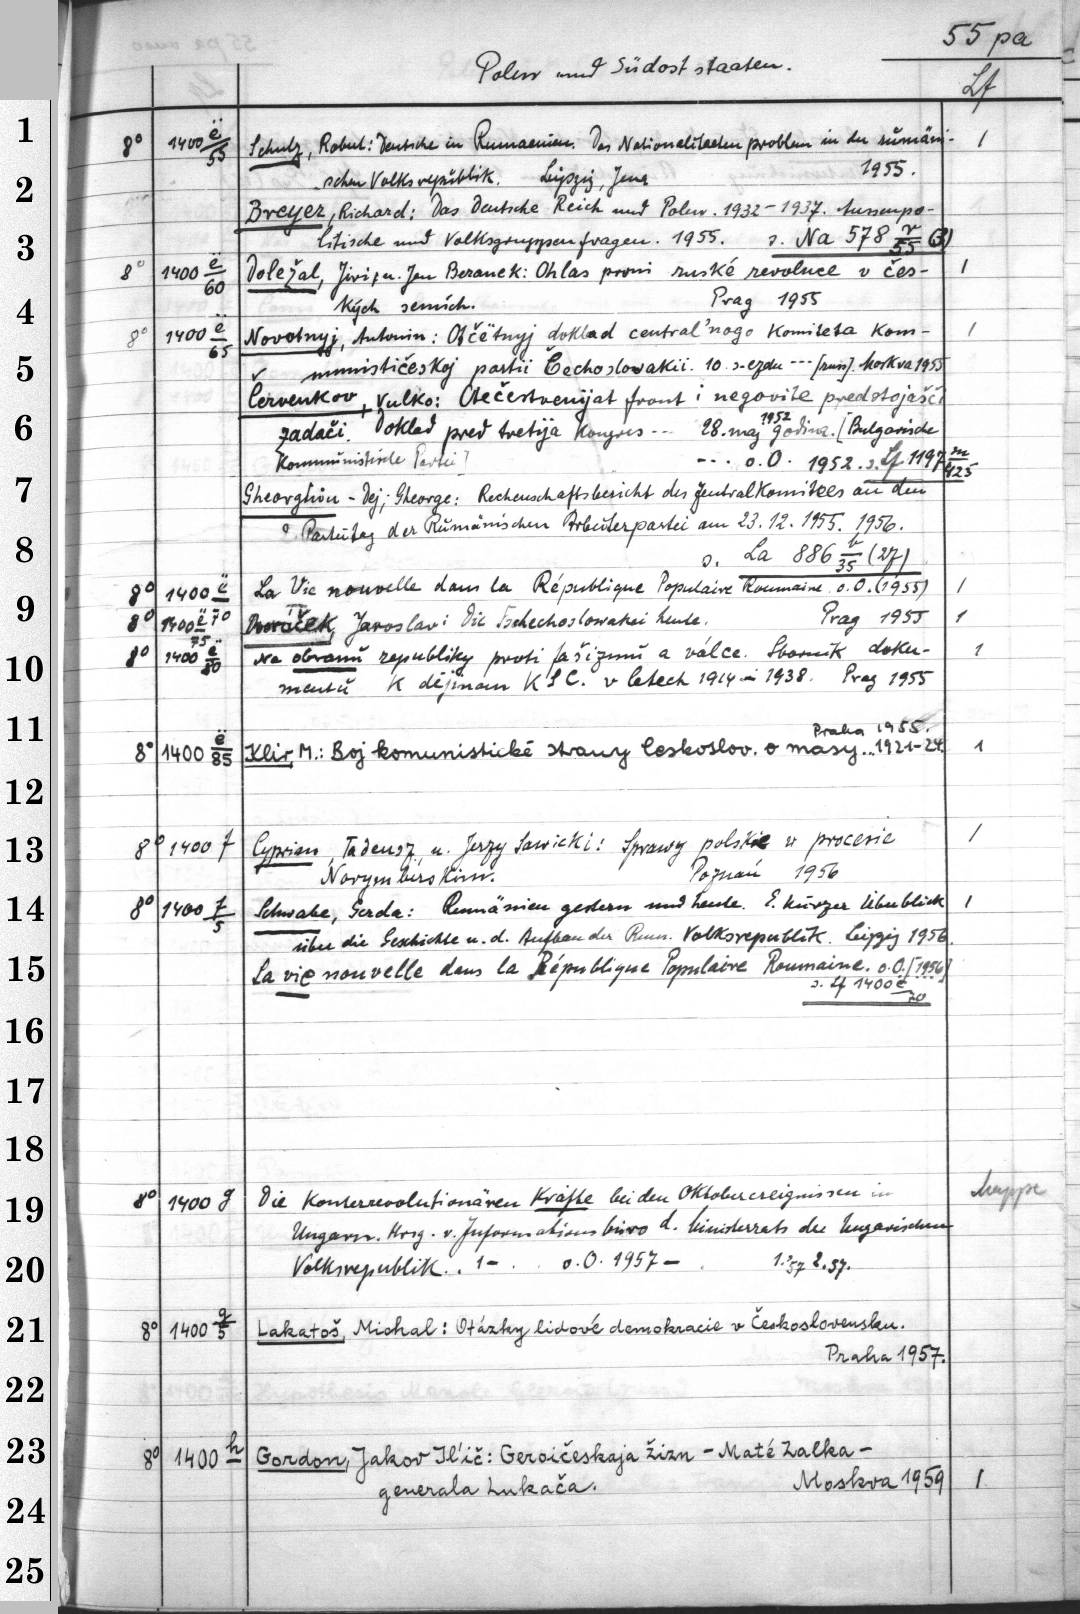 55 pa
Polen und Südoststaaten.
Lf
1
8° 1400 ë/55 Schulz, Robert: Deutsche in Rumaenien. Das Nationalitaetenproblem in der rumäni- 1
2
schen Volksrepublik. Leipzig, Jena 1955.
Breyer, Richard: Das Deutsche Reich und Polen. 1932-1937. Aussenpo-
3
litische und Volksgruppenfragen. 1955. s. Na 578 r/55 (3)
8° 1400 ë/60 Doležal, Jiri, u. Jan Beranek: Ohlas prvni ruské revoluce v čes- 1
4
kých zemích. Prag 1955
8° 1400 ë/65 Novotnyj, Antonin: Otčëtnyj doklad central'nogo Komiteta Kom- 1
5
munističeskoj partii Čechoslowakii. 10. s-ezdu --- [russ]. Moskva 1955
Červenkov, Vulko: Otečestvenijat front i negovite predstojašči
6
zadači. Doklad pred tretija Kongres -- 28. maj 1952 godina. [Bulgarische
Kommunistische Partei] --. o.O. 1952. s. Lf 1197 m/425
7
Gheorghiu-Dej, Gheorge: Rechenschaftsbericht des Zentralkomitees an den
2. Parteitag der Rumänischen Arbeiterpartei am 23.12.1955. 1956.
8
s. La 886 v/35 (27)
8° 1400 ë/70 La Vie nouvelle dans la République Populaire Roumaine. o.O. (1955) 1
9
8° 1400 ë/75 Dvoráček, Jaroslav: Die Tschechoslowakei heute. Prag 1955 1
10
8° 1400 ë/80 Na obranu republiky proti fašizmu a válce. Sborník doku- 1
mentů k dějinam KSC. v letech 1914-1938. Prag 1955
11
Praha 1955.
8° 1400 ë/85 Klir, M.: Boj komunistické strany Českoslov. o masy...1921-24. 1
12
13
8° 1400 f Cyprian, Tadeusz, u. Jerzy Sawicki: Sprawy polskie w procesie 1
Norymberskim. Poznań 1956
14
8° 1400 f/5 Schwabe, Gerda: Rumänien gestern und heute. E. kurzer Überblick 1
über die Geschichte u. d. Aufbau der Rum. Volksrepublik. Leipzig 1956.
15
La vie nouvelle dans la République Populaire Roumaine. o.O. [1956]
s. Lf 1400 ë/70
16
17
18
19
8° 1400 g Die Konterrevolutionären Kräfte bei den Oktoberereignissen in Mappe
Ungarn. Hrsg. v. Informationsbüro d. Ministerrats der Ungarischen
20
Volksrepublik. . 1- . o.O. 1957- . 1.57 2.57.
21
8° 1400 g/5 Lakatoš, Michal: Otázky lidové demokracie v Československu.
Praha 1957.
22
23
8° 1400 h Gordon, Jakov Il'ič: Geroičeskaja žizn - Maté Zalka -
24
generala Lukača. Moskva 1959 1
25